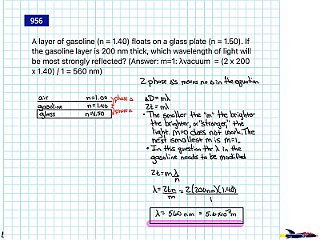 956
A layer of gasoline (n = 1.40) floats on a glass plate (n = 1.50). If
the gasoline layer is 200 nm thick, which wavelength of light will
be most strongly reflected? (Answer: m=1: λvacuum = (2 x 200
x 1.40) / 1 = 560 nm)
2 phase Δ's means no ½ in the equation
air n=1.00
gasoline n=1.40
glass n=1.50
phase Δ
phase Δ
ΔD = mλ
2t = mλ
• The smaller the "m" the brighter
the brighter, or "stronger," the
light. m=0 does not work. The
next smallest is m=1.
• In this question the λ in the
gasoline needs to be modified
2t = mλ/n
λ = 2tn/m = 2(200nm)(1.40)/1
λ = 560 nm = 5.6x10⁻⁷m